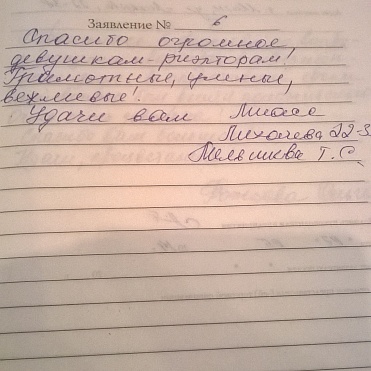 Заявление № 6
Спасибо огромное,
девушкам-риэлторам!
Грамотные, умные,
вежливые!
Удачи вам Миасс
Лихачева 22-3
Мельникова Т. С.